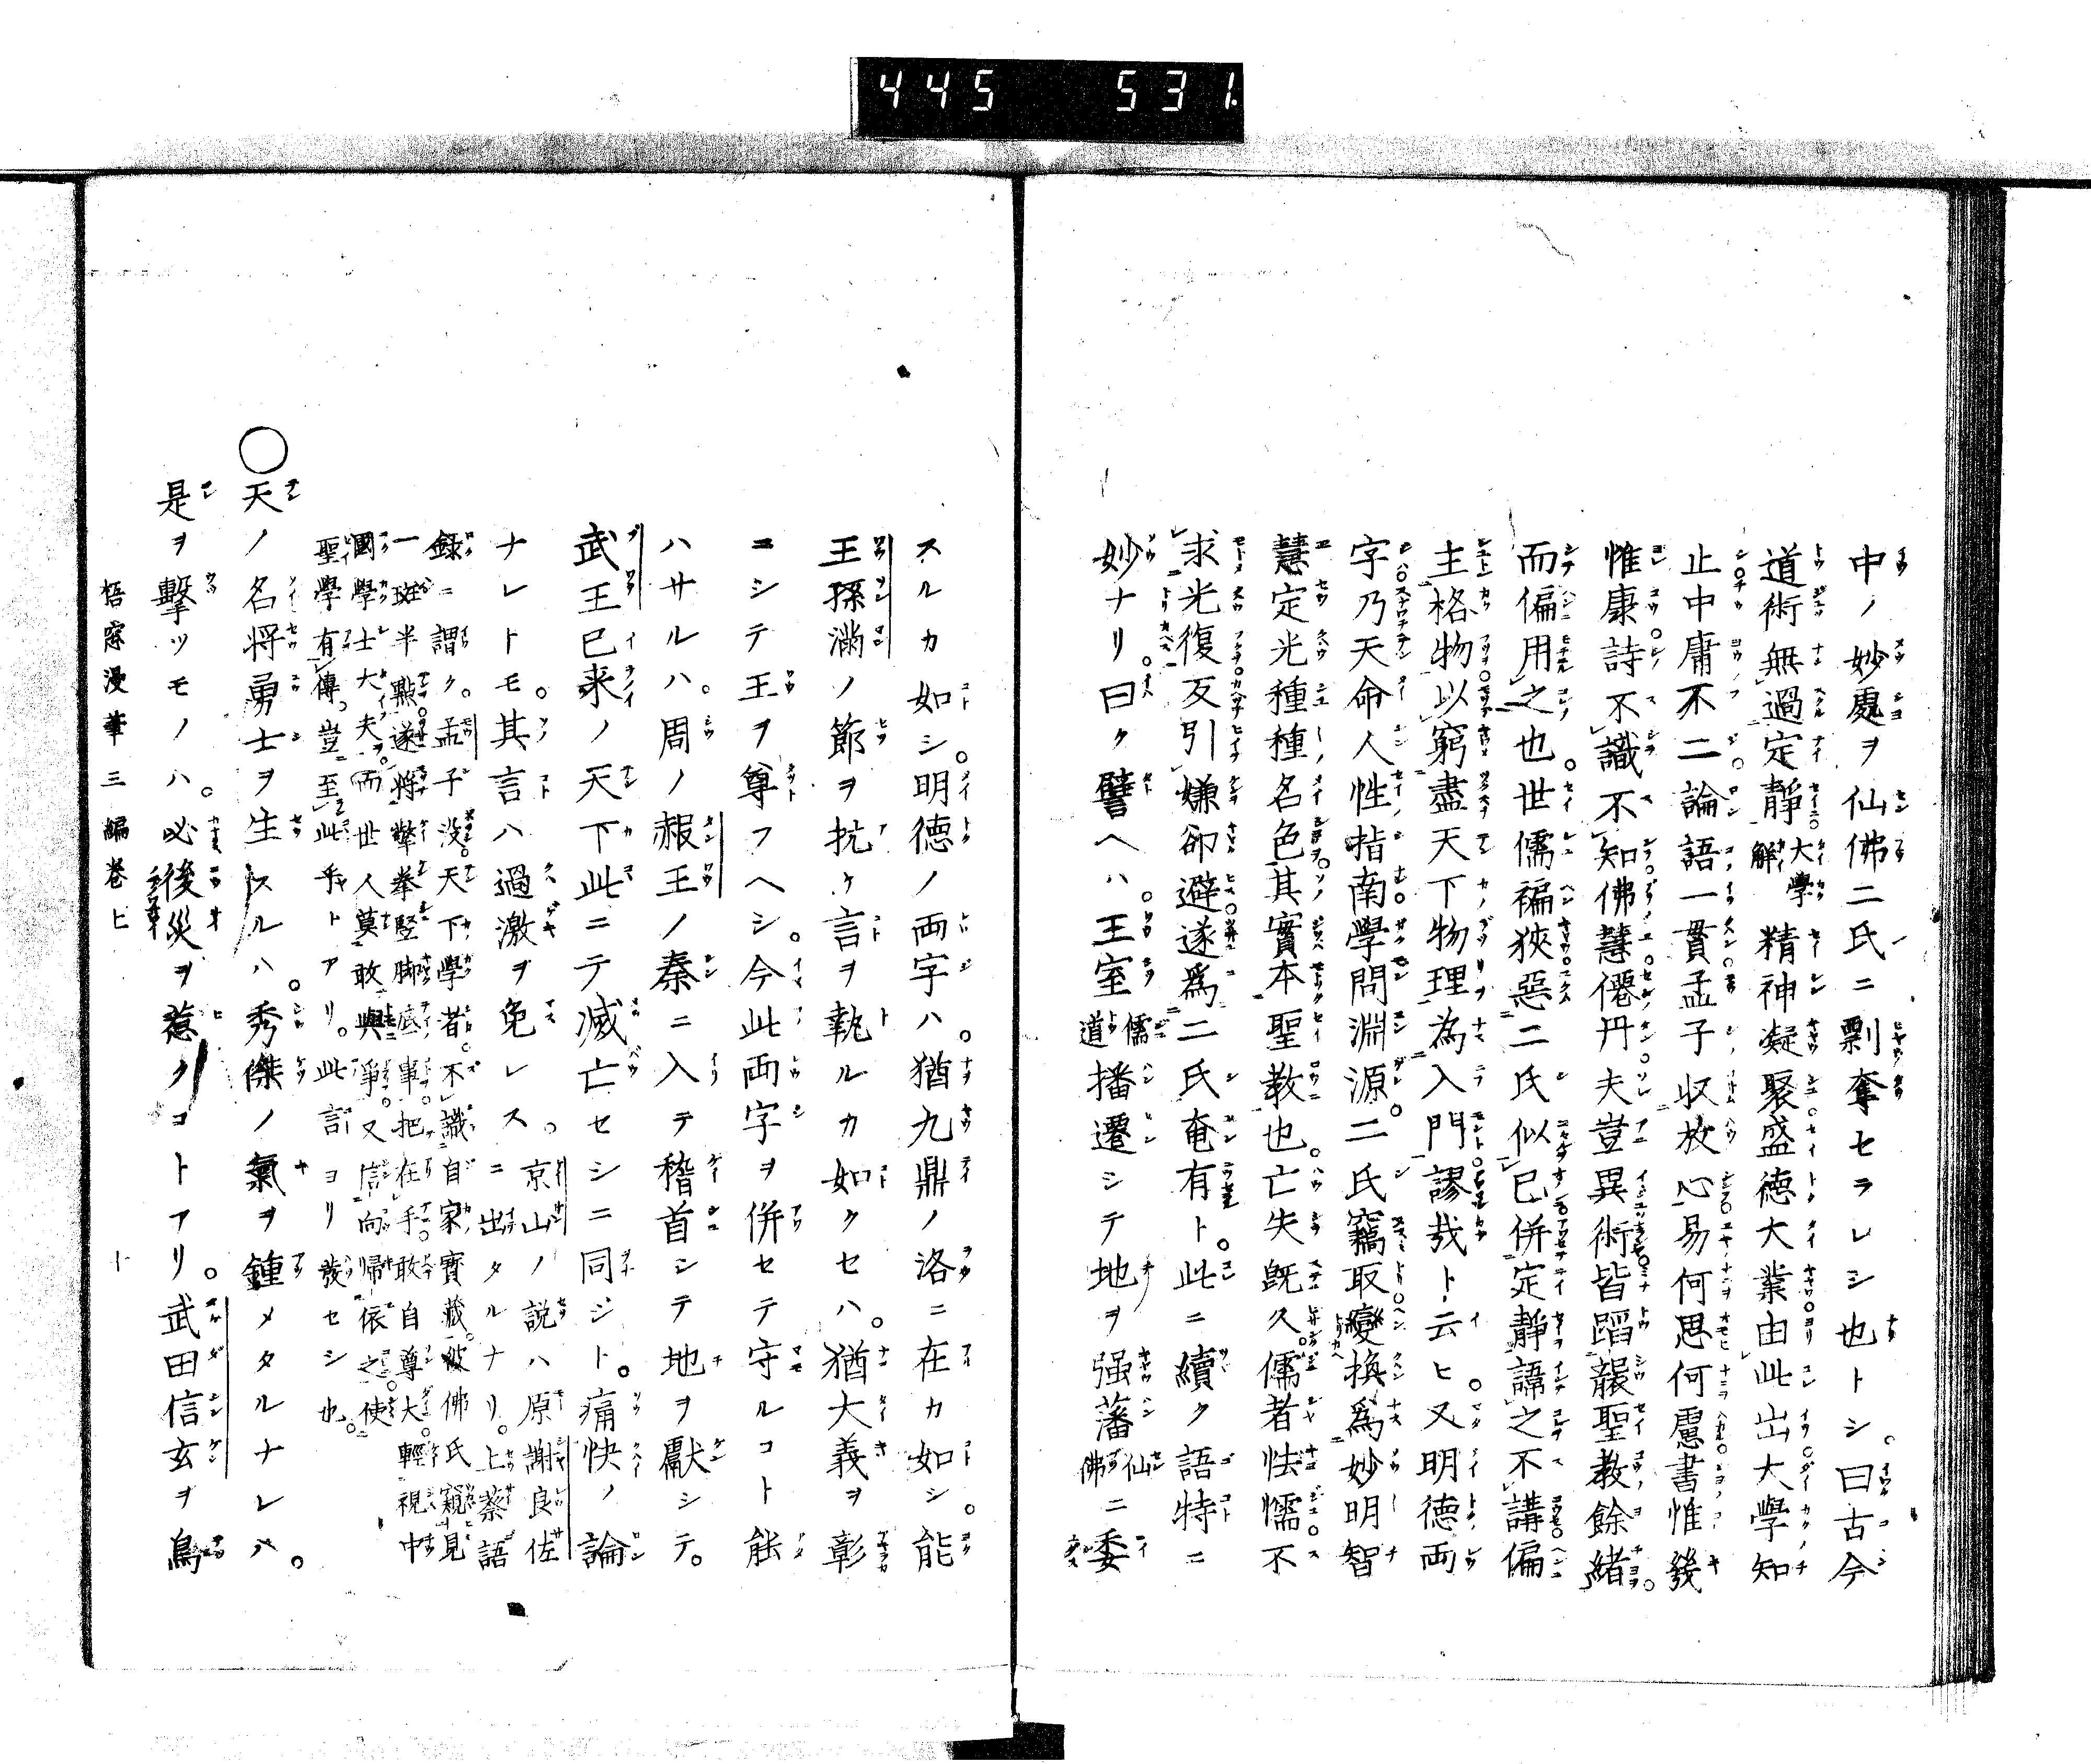 445 531.
中ノ妙處ヲ仙佛二氏ニ剽奪セラレシ也トシ。曰古今
道術無過定靜大學解精神凝聚盛徳大業由此出大學知
止中庸不二論語一貫孟子収放心易何思何慮書惟幾
惟康詩不識不知佛慧僊丹夫豈異術皆蹈襲聖教餘緒
而偏用之也。世儒褊狹惡二氏似已併定靜諱之不講偏
主格物以窮盡天下物理為入門謬哉ト云ヒ。又明徳両
字乃天命人性指南學問淵源。二氏竊取變換爲妙明智
慧定光種種名色。其實本聖教也。亡失既久。儒者怯懦不
求光復反引嫌卻避遂爲二氏奄有ト。此ニ續ク語特ニ
妙ナリ。曰ク譬ヘハ。王室儒道播遷シテ地ヲ强藩仙佛ニ委
スルカ如シ。明德ノ両字ハ。猶九鼎ノ洛ニ在カ如シ。能
王孫滿ノ節ヲ抗ケ言ヲ執ルカ如クセハ。猶大義ヲ彰
ニシテ王ヲ尊フヘシ。今此両字ヲ併セテ守ルコト能
ハサルハ。周ノ赧王ノ秦ニ入テ稽首シテ地ヲ獻シテ。
武王已来ノ天下此ニテ滅亡セシニ同シト。痛快ノ論
ナレトモ。其言ハ過激ヲ免レス。京山ノ説ハ原謝良佐
ニ出タルナリ。上蔡語
録ニ謂ク。孟子没天下學者。不識自家寶藏。被佛氏窺見
一斑半點。遂將擎拳竪脚底事。把在手。敢自尊大。輕視中
國學士大夫。而世人莫敢與爭。又信向歸依之。使
聖學有傳。豈至此乎トアリ。此言ヨリ發セシ也。
○天ノ名将勇士ヲ生スルハ。秀傑ノ氣ヲ鍾メタルナレハ。
是ヲ擊ツモノハ。必後災ヲ惹クコトアリ。武田信玄ヲ鳥
梧窓漫筆三編卷上